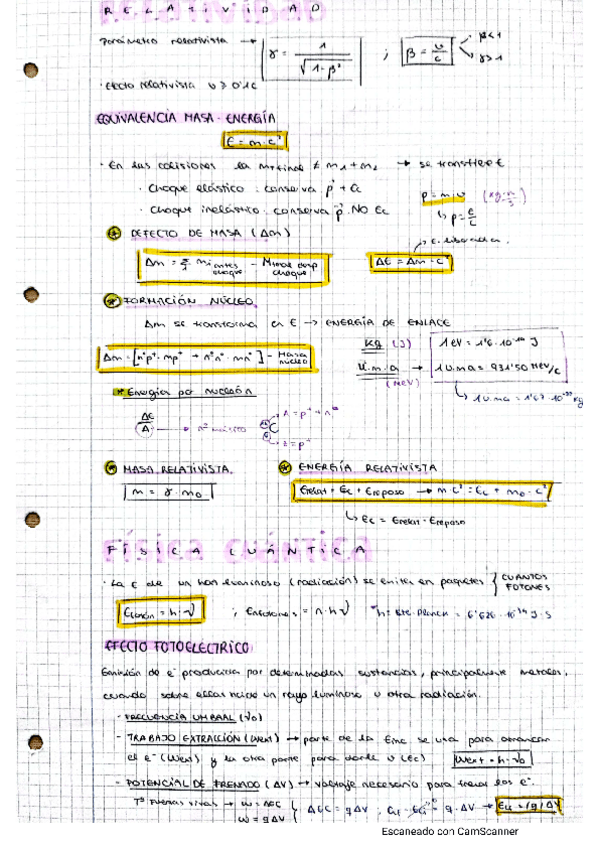 RELATIVIDAD
Parámetro relativista → γ = 1 / √1-β² ; β = v/c β<1 γ>1
· Efecto relativista v > 0'1c
EQUIVALENCIA MASA - ENERGÍA
E = m·c²
· En las colisiones la m final ≠ m1 + m2 → se transfiere E
· Choque elástico : conserva p + Ec
· Choque inelástico : conserva p NO Ec
p = m·v (kg·m/s)
↳ p = E/c
DEFECTO DE MASA (Δm)
E. liberada.
Δm = Σ mi antes choque - M total desp choque
ΔE = Δm·c²
FORMACIÓN NÚCLEO
Δm se transforma en E → ENERGÍA DE ENLACE
Δm = [nºp⁺·mp⁺ + nºn⁰·mn⁰] - Masa núcleo
Kg (J)
1 eV = 1'6·10⁻¹⁹ J
U.m.a → (MeV)
1 u.ma = 931'50 MeV/c
↳ 1 u.ma = 1'67·10⁻²⁷ kg
Energía por nucleón
ΔE/A → nº másico
C A = p⁺ + n⁰
Z = p⁺
MASA RELATIVISTA
ENERGÍA RELATIVISTA
m = γ·m₀
Erelat = Ec + Ereposo → mc² = Ec + m₀·c²
↳ Ec = Erelat - Ereposo
FÍSICA CUÁNTICA
· La E de un haz luminoso (radiación) se emite en paquetes { CUANTOS FOTONES
Efotón = h·ν ; Enfotones = n·h·ν *h = cte. Planck = 6'626·10⁻³⁴ J·s
EFECTO FOTOELÉCTRICO
Emisión de e⁻ producida por determinadas sustancias, principalmente metales,
cuando sobre ellas incide un rayo luminoso u otra radiación.
- FRECUENCIA UMBRAL (ν₀)
- TRABAJO EXTRACCIÓN (Wext) → parte de la Einc se usa para arrancar
el e⁻ (Wext) y la otra parte para darle v (Ec) Wext = h·ν₀
- POTENCIAL DE FRENADO (ΔV) → voltaje necesario para frenar los e⁻.
Tª Fuerzas vivas → W = ΔEC { ΔEC = qΔV ; = q·ΔV → Ec = |q|ΔV
W = qΔV
Escaneado con CamScanner